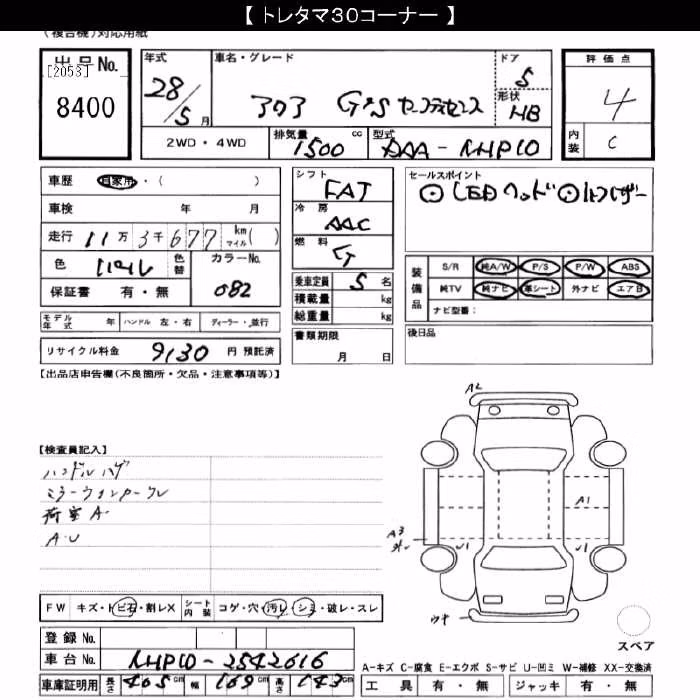 【 トレタマ30コーナー 】
(複合機)対応用紙
出品No.
[2053]
8400
年式
28/5月
車名・グレード
ドア
5
形状
HB
評価点
4
内装
C
2WD・4WD
排気量
1500 cc
型式
DAA-NHP10
車歴 自家用・( )
車検 年 月
走行 11万3千677 km マイル( )
色
色替
カラーNo.
082
保証書 有・無
モデル年式 年 ハンドル 左・右 ディーラー・並行
リサイクル料金 9130 円 預託済
シフト
FAT
冷房
AAC
燃料
G
乗車定員 5 名
積載量 kg
総重量 kg
書類期限
月 日
セールスポイント
装備品
S/R 純A/W P/S P/W ABS
純TV 純ナビ 革シート 外ナビ エアB
ナビ型番:
後日品
【出品店申告欄(不良箇所・欠品・注意事項等)】
【検査員記入】
荷室A
A・U
A2
A1
A3
FW キズ・トビ石・割レX シート内装 コゲ・穴・汚レ・シミ・破レ・スレ
登録No.
車台No. NHP10-2542616
車庫証明用 長さ 405cm 幅 169cm 高さ 143cm
スペア
A-キズ C-腐食 E-エクボ S-サビ U-凹ミ W-補修 XX-交換済
工具 有・無 ジャッキ 有・無